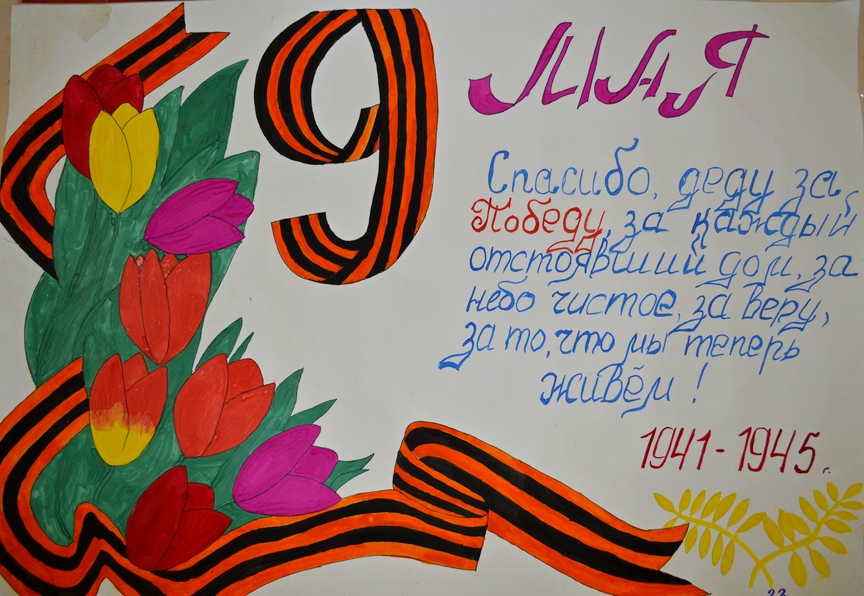 9 МАЯ
Спасибо, деду за
Победу, за каждый
отстоявший дом, за
небо чистое, за веру,
за то, что мы теперь
живём!
1941-1945г.
23